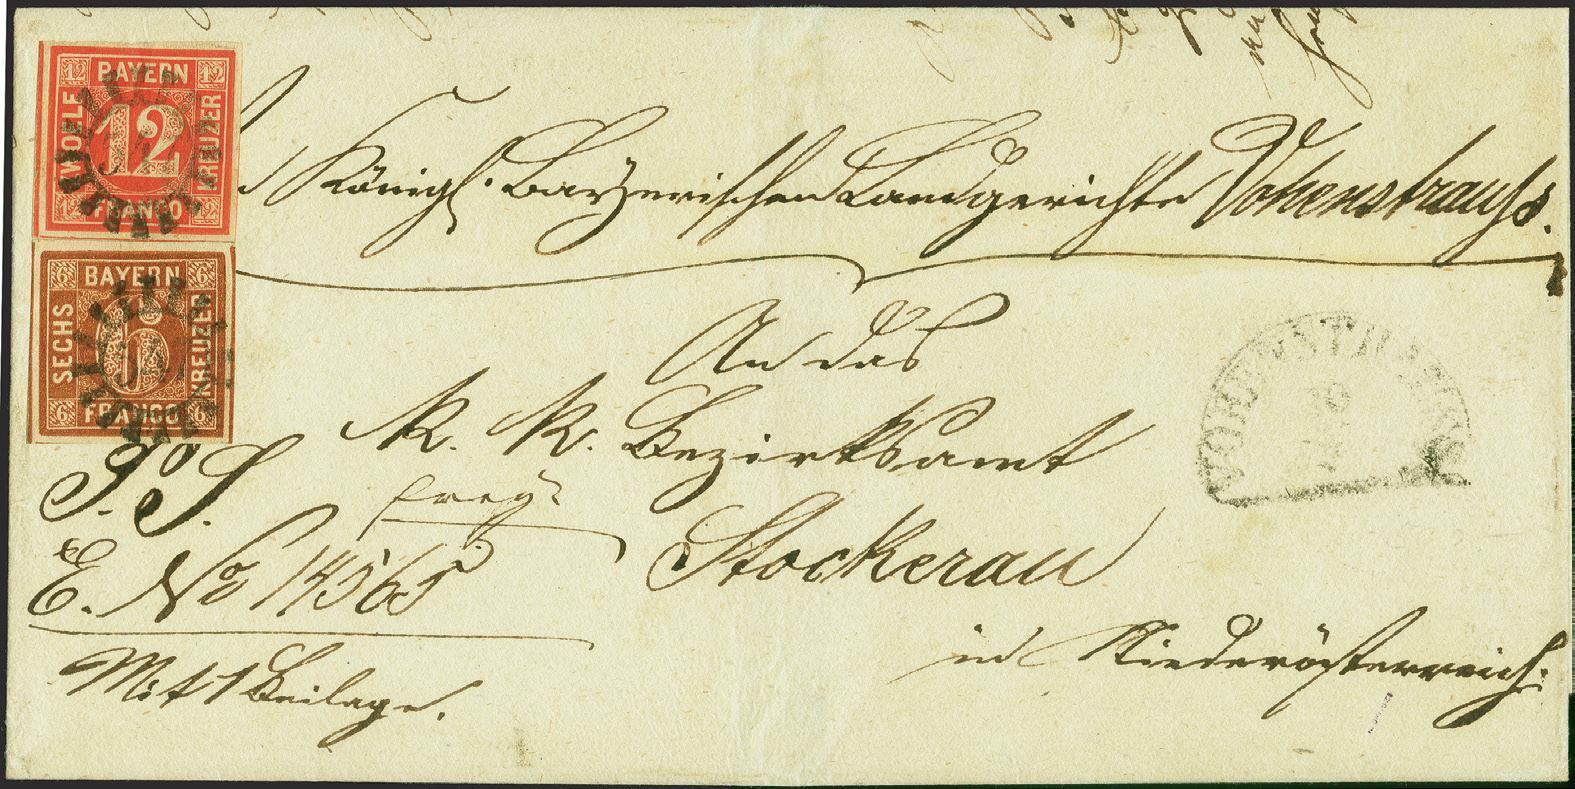 12 BAYERN 12
WOELF 12 KREUZER
12 FRANCO 12
6 BAYERN 6
SECHS 6 KREUZER
6 FRANCO 6
Königl. Bayerischen Landgerichte Vohenstrauß.
An das
K. K. Bezirksamt
frey
Stockerau
in Niederösterreich.
P. S.
E. No 14565
Mit 1 Beilage.
VOHENSTRAUSS